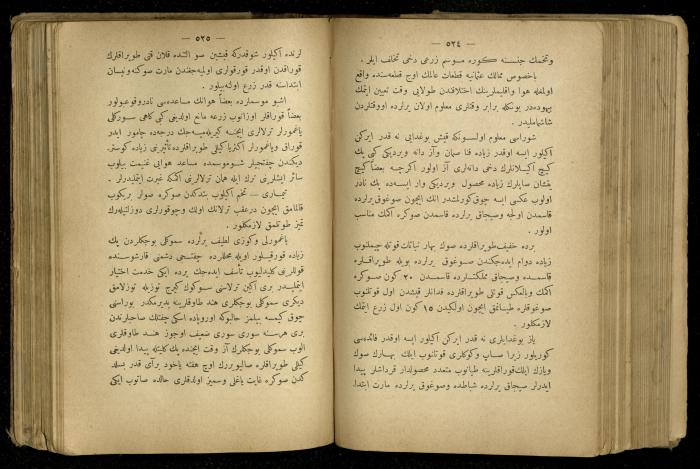 — ٥٢٤ —
وتخمك جنسنه كوره موسم زرعى دخى تخالف ايلر .
باخصوص ممالك عثمانيه قطعات عالمك اوج قطعه‌سنده واقع
اولمغله هوا واقليملرينك اختلافندن طولايى وقت تعيين ايتمك
بيهوده‌در بونكله برابر وقتلرى معلوم اولان يرلرده اووقتلردن
شاشمامليدر .
شوراسى معلوم اولسونكه قيش بوغدايى نه قدر ايركن
اكيلور ايسه اوقدر زياده فنا صمان وآز دانه ويرديكى كبى پك
كيچ اكيلانلرك دخى دانه‌لرى آز اولور اكرچه بعضاً كيچ
يغشان سايلرك زياده محصول ويرديكى وار ايسه‌ده پك نادر
اولوب عكسى ايسه چوق كورلمشدر انك ايچون صوغوق يرلرده
قاسمدن اولجه وسيجاق يرلرده قاسمدن صوكره اكمك مناسب
اولور .
برده خفيف طوپراقلرده صوك بهار نباتات قوتله چيملنوب
زياده دوام ايده‌جكندن صوغوق يرلرده بويله طوپراقلره
قاسمده وسيجاق مملكتلرده قاسمدن ٢٠ كون صوكره
اكمك وبالعكس قوتلى طوپراقلرده فدانلر قيشدن اول قوتلنوب
صوغوقلره طيانمق ايچون اولكيدن ١٥ كون اول زرع ايتمك
لازمكلور .
ياز بوغدايلرى نه قدر ايركن اكيلور ايسه اوقدر فائده‌سى
كوريلور زيرا ساپ وكوكلرى قوتلنوب ايلك بهارك صوك
ويازك ايلك قوراقلرينه طيانوب متعدد محصولدار قرداشلر پيدا
ايدرلر سيجاق يرلرده شباطده وصوغوق يرلرده مارت ابتدا.
— ٥٢٥ —
لرنده اكيلور شوقدركه قيشين صو التنده قلان قتى طوپراقلرك
قوراقدن اوقدر قورقولرى اوليه‌جغندن مارت صوكنه ونيسان
ابتداسنه قدر زرع اولنه‌بيلور .
اشو موسملرده بعضاً هوانك مساعده‌سى نادر وقوعبولور
بعضاً قوراقلر اوزانوب زرعه مانع اولديغى كبى كاهى سوركلى
يانمورلر ترلالرى ايچنه كيريله‌ميه‌جك درجه‌ده چامور ايدر
قوراق ويانمورلر اكثريا كيلى طوپراقلرده تأثيرينى زياده كوستر.
ديكندن چفتجيلر شو موسمده مساعد هوايى غنيمت بيلوب
سائر ايشلرينى ترك ايله همان ترلالرينى اكمكه غيرت ايتمليدرلر .
تيمارى — تخم اكيلوب بتدكدن صوكره صولر بريكوب
قالمامق ايچون درعقب ترلانك اولك وچوقورلرى دوزلتيله‌رك
تميز طوتلمق لازمكلور .
يانمورلى وكوزى لطيف يرلرده سموكلى بوجكلردن پك
زياده قورقيلور اويله محللرده چفتجى دشمنى قارشوسنده
قوللرينى كليدليوب تأسف ايده‌جك يرده ايكى خدمت اختيار
ايتمليدر برى اكين ترلاسنى سونكوك كيرج توزيله توزلامق
ديكرى سموكلى بوجكلرى هند طاوقلرينه يديرمكدر بوراسنى
چوق كيمسه بيلمز حالبوكه اوروپاده اسكى چفتلك صاحبلرندن
برى هرسنه سورى سورى ضعيف اوجوز هند طاوقلرى
الوب سموكلى بوجكلرك آز وقت ايچنده پك كليتله پيدا اولديغى
كيلى طوپراقلره صاليويررك اوچ هفته ياخود برآى قدر بسلد.
كدن صوكره غايت ياغلى وسميز اولدقلرى حالده صاتوب ايكى